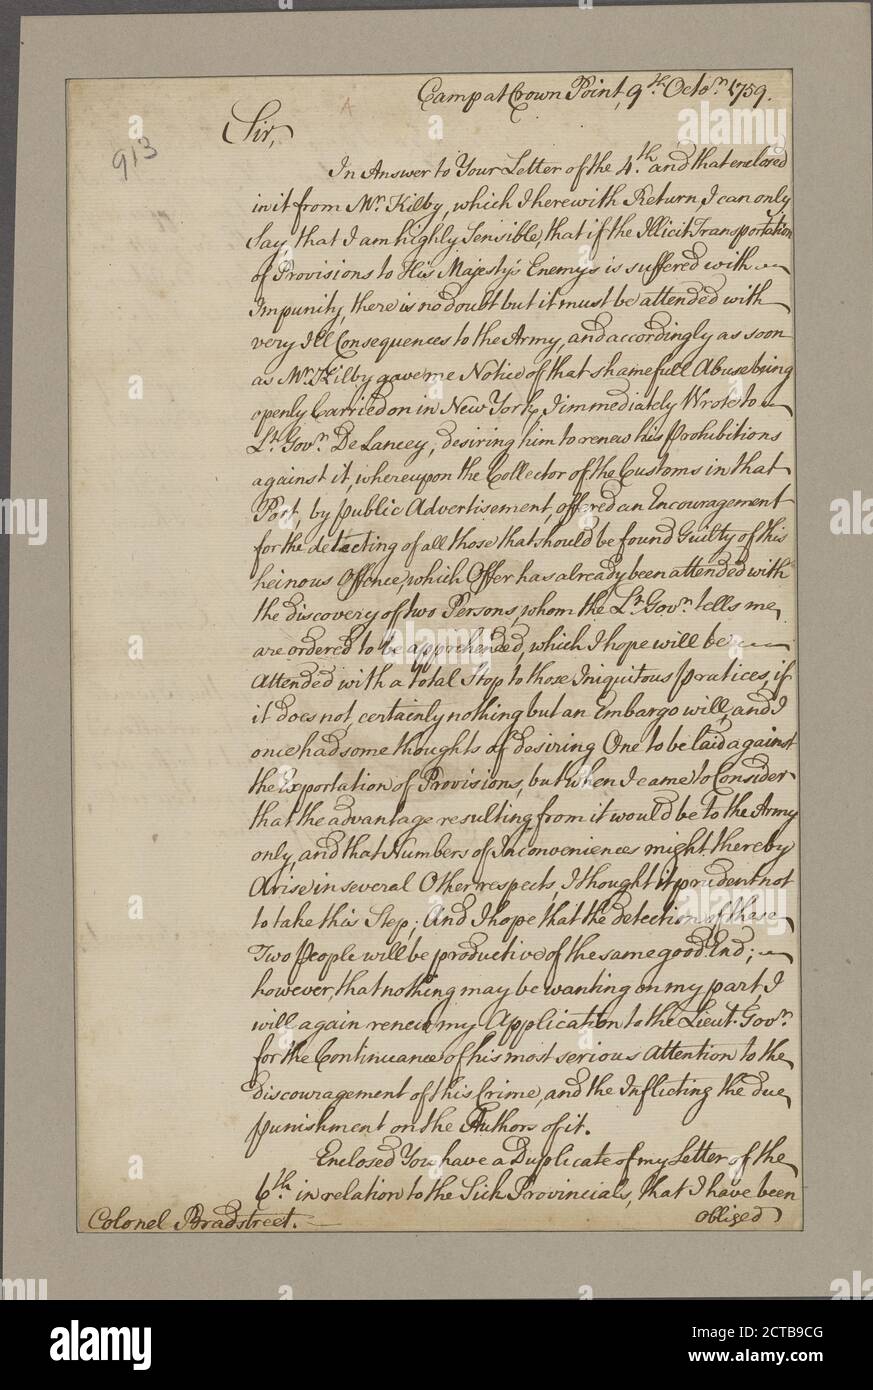 Camp at Crown Point, 9.th Octo.r 1759.
A
Sir,
913
In Answer to Your Letter of the 4.th and that enclosed
in it from Mr. Kilby, which I herewith Return, I can only
Say that I am highly Sensible, that if the Illicit Transportation
of Provisions to His Majesty's Enemys is suffered with
Impunity, there is no doubt but it must be attended with
very Ill Consequences to the Army, and accordingly as soon
as Mr. Kilby gave me Notice of that shamefull Abuse being
openly Carried on in New York, I immediately Wrote to
Lt. Gov.r De Lancey, desiring him to renew his Prohibitions
against it, whereupon the Collector of the Customs in that
Port, by public Advertisement, offered an Encouragement
for the detecting of all those that should be found Guilty of this
heinous Offence, which Offer has already been attended with
the discovery of two Persons, whom the Lt. Gov.r tells me
are ordered to be apprehended, which I hope will be
Attended with a total Stop to those Iniquitous practices, if
it does not, certainly nothing but an Embargo will, and I
once had some thoughts of desiring One to be laid against
the Exportation of Provisions, but when I came to Consider
that the advantage resulting from it would be to the Army
only, and that Numbers of Inconveniences might thereby
Arise in several Other respects, I thought it prudent not
to take this Step; And I hope that the detection of these
Two People will be productive of the same good End;
however, that nothing may be wanting on my part, I
will again renew my Application to the Lieut. Gov.r
for the Continuance of his most serious Attention to the
discouragement of this Crime, and the Inflicting the due
punishment on the Authors of it.
Enclosed You have a Duplicate of my Letter of the
6.th in relation to the Sick Provincials, that I have been
obliged
Colonel Bradstreet.
alamy
Image ID: 2CTB9CG
www.alamy.com